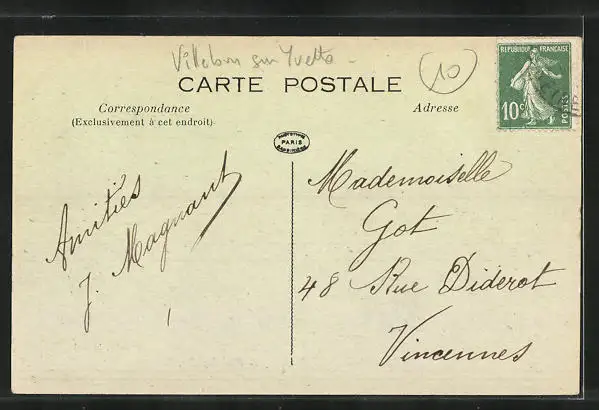 Villebon sur Yvette -
10
CARTE POSTALE
Correspondance
(Exclusivement à cet endroit)
Adresse
REPUBLIQUE FRANÇAISE
10c
POSTES
PARIS
Amitiés
J. Magnant
Mademoiselle
Got
48 Rue Diderot
Vincennes